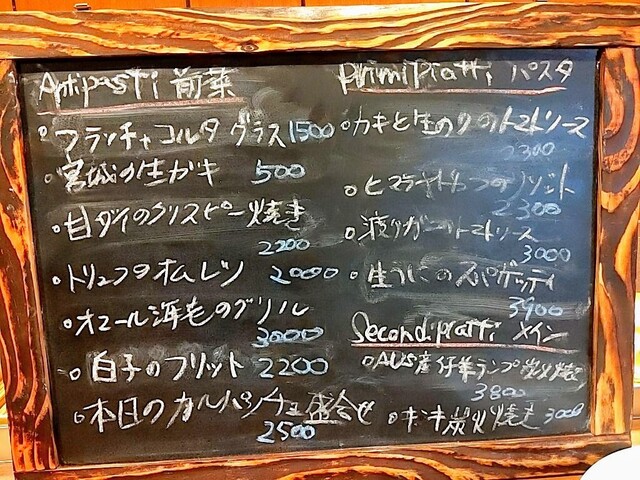 Antipasti 前菜
フランチャコルタ グラス 1500
宮城の生ガキ 500
目ダイのクリスピー焼き
2200
トリュフのオムレツ 2000
オマール海老のグリル
3000
白子のフリット 2200
本日のカルパッチョ盛合せ
2500
Primi Piatti パスタ
カキと生のりのトマトソース
2300
ヒマラヤ のリゾット
2300
渡りガニのトマトソース
3000
生うにのスパゲッティ
3900
Secondi piatti メイン
AUS産仔羊ランプ炭火焼
3800
キンキ炭火焼き 3000